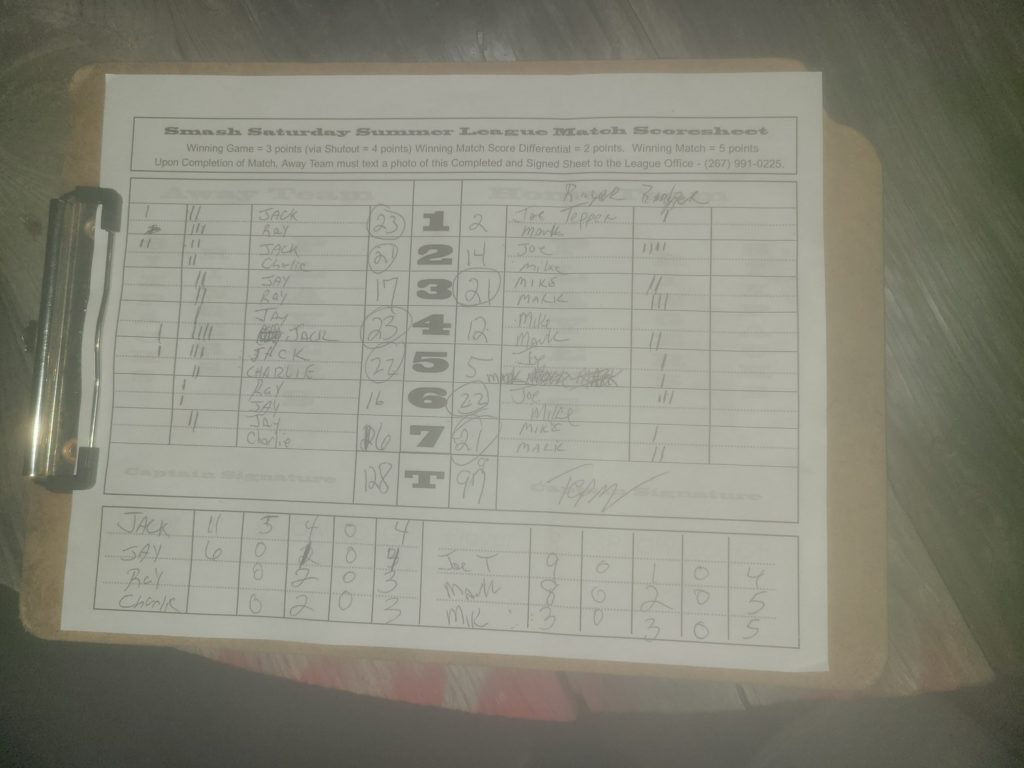 Smash Saturday Summer League Match Scoresheet
Winning Game = 3 points (via Shutout = 4 points) Winning Match Score Differential = 2 points. Winning Match = 5 points
Upon Completion of Match, Away Team must text a photo of this Completed and Signed Sheet to the League Office - (267) 991-0225.
Away Team Home Team
I II JACK 23 1 2 Joe Tepper II
III Ray Mark
II II JACK 21 2 14 Joe IIII
II Charlie Mike
II JAY 17 3 21 MIKE II
II Ray MARK III
I JAY 23 4 12 Mike
I IIII JACK Mark II
I III JACK 22 5 5 Joe I
II CHARLIE Mark I
I Ray 16 6 22 Joe III
I JAY Mike
II JAY 6 7 21 MIKE I
Charlie MARK II
Captain Signature 128 T 97 Captain Signature
JACK 11 5 4 0 4
JAY 6 0 0 4 Joe T 9 0 1 0 4
Ray 0 2 0 3 Mark 8 0 2 0 5
Charlie 0 2 0 3 Mik 3 0 3 0 5